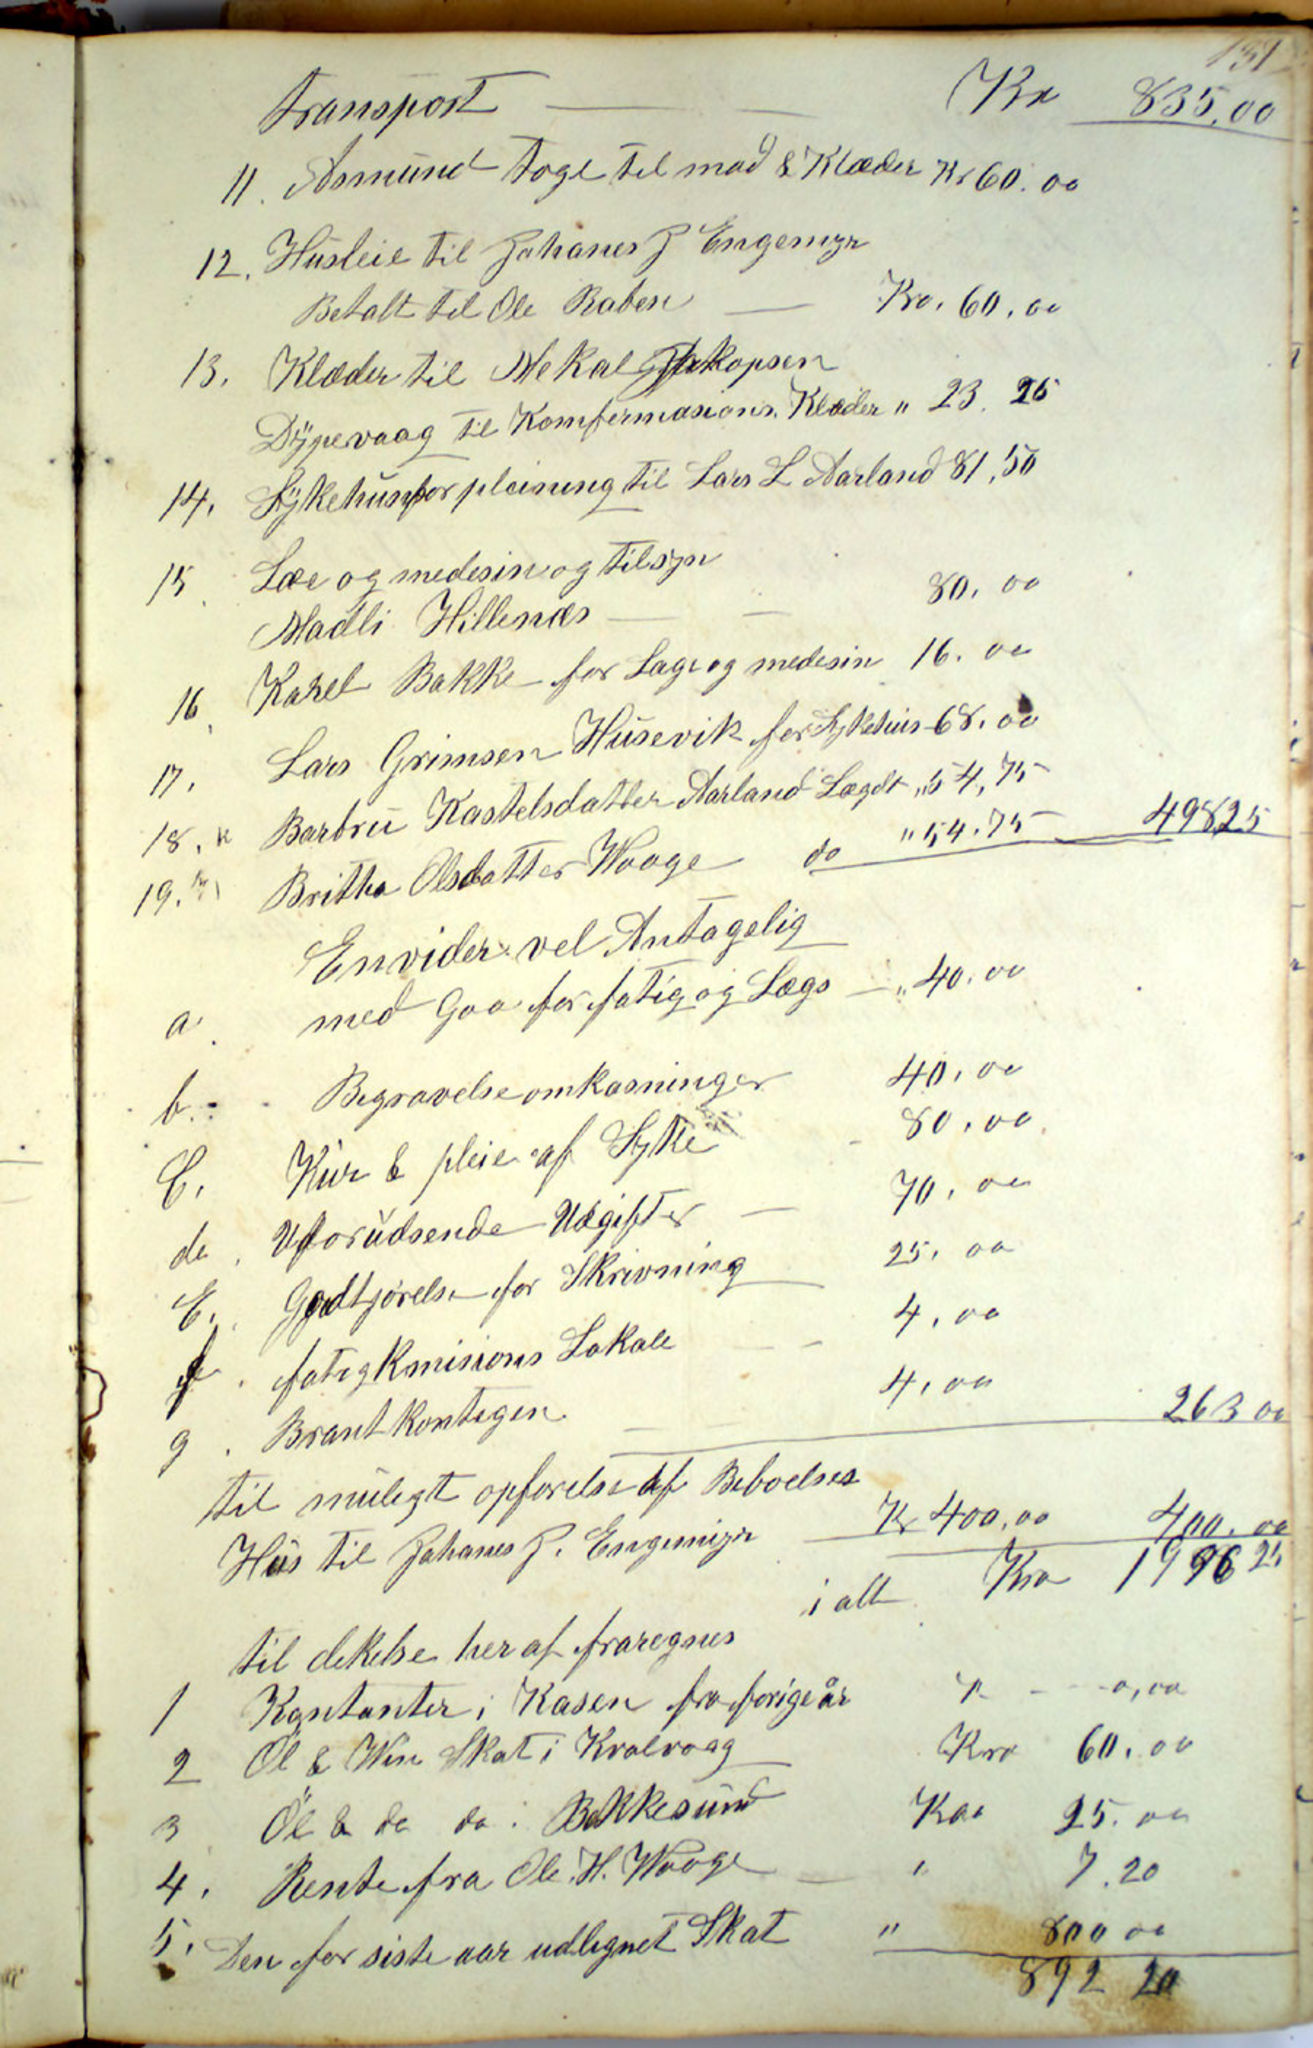 131
Transport — Kr 835.00
11. Asmund Toge til mad & Klæder Kr 60.00
12. Husleie til Johanes J Engemyr
Betalt til Ole Raben — Kro. 60.00
13. Klæder til Mekal Jakopsen
Dÿpevaag til Komfermasions Klæder " 23.25
14. Sÿkehusforpleining til Lars L Aarland 81,50
15. Læe og medesin og tilsyn
Madli Hillenæs — 80.00
16. Karel Bakke for Lage og medesin 16.00
17. Lars Grimsen Husevik for Sykehus 68.00
18. Barbru Kastelsdatter Aarland Lægdt " 54,75
19. Britha Olsdatter Waage do " 54.75 49825
Envider vel Antagelig
a. med Gaa for fatig og Lægs — " 40.00
b. Begravelseomkasninger 40.00
C. Kur & pleie af Syke 80.00
de. Uforudsende Udgifter — 70.00
E. Godtjørelse for Skrivning 25.00
f. fatigkmisions Lokale 4.00
g. Brantkontigen — 4.00 263 00
til muligt opførelse af Beboelses
Hus til Johanes J. Engemyr Kr 400,00 400.00
i alt Kro 1996 25
til dekelse her af fraregnes
1 Kantanter i Kasen fra forige år 0,00
2 Öl & Win Skat i Kvalvaag Kro 60.00
3 Öl & do do i Bakkesund Kro 25.00
4. Rente fra Ole. H. Waage — " 7.20
5. Den for siste aar udlignet Skat " 800 00
892 20